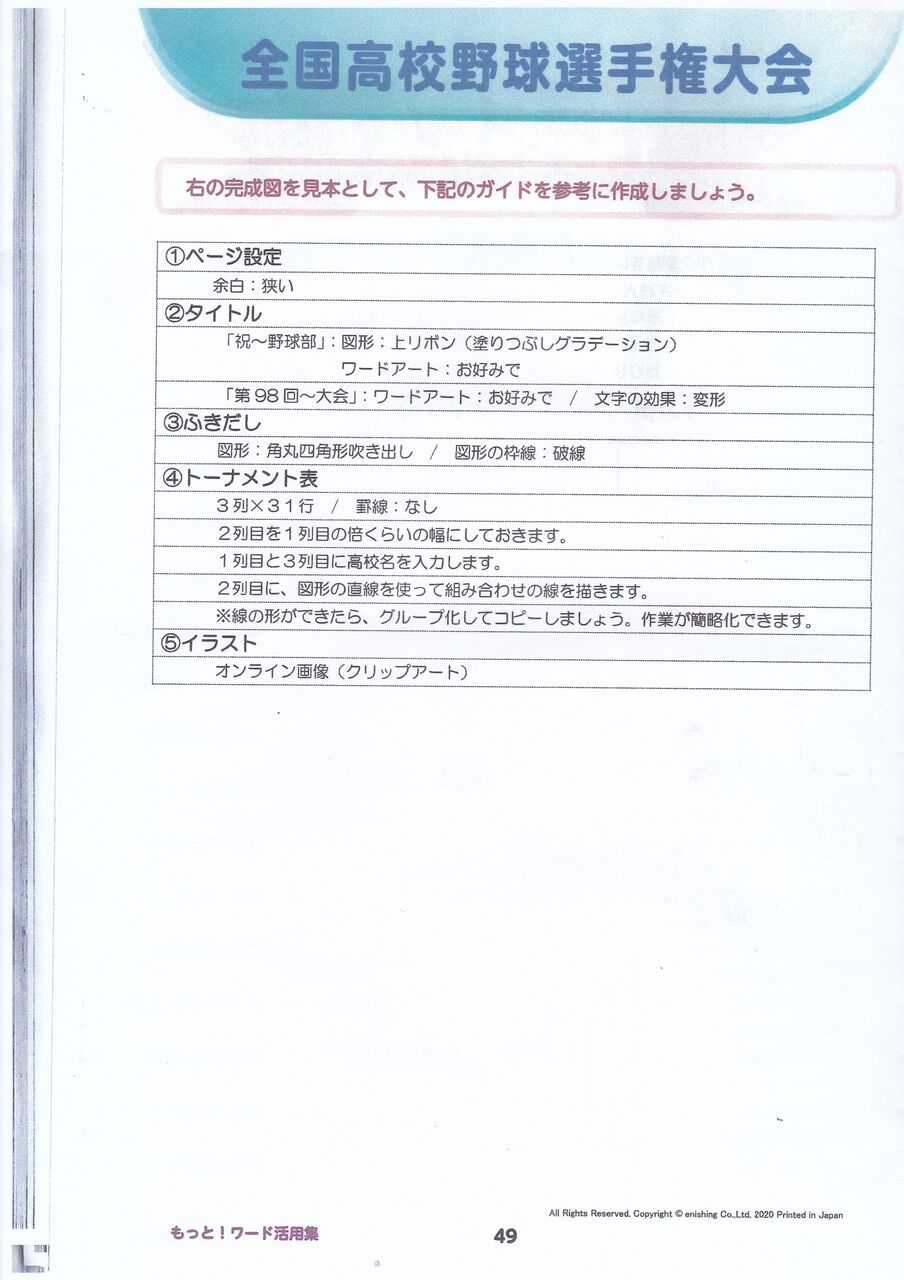 全国高校野球選手権大会
右の完成図を見本として、下記のガイドを参考に作成しましょう。
①ページ設定
余白：狭い
②タイトル
「祝～野球部」：図形：上リボン（塗りつぶしグラデーション）
ワードアート：お好みで
「第 98 回～大会」：ワードアート：お好みで　/　文字の効果：変形
③ふきだし
図形：角丸四角形吹き出し　/　図形の枠線：破線
④トーナメント表
３列×３１行　/　罫線：なし
２列目を１列目の倍くらいの幅にしておきます。
１列目と３列目に高校名を入力します。
２列目に、図形の直線を使って組み合わせの線を描きます。
※線の形ができたら、グループ化してコピーしましょう。作業が簡略化できます。
⑤イラスト
オンライン画像（クリップアート）
All Rights Reserved. Copyright © enishing Co.,Ltd. 2020 Printed in Japan
もっと！ワード活用集
49